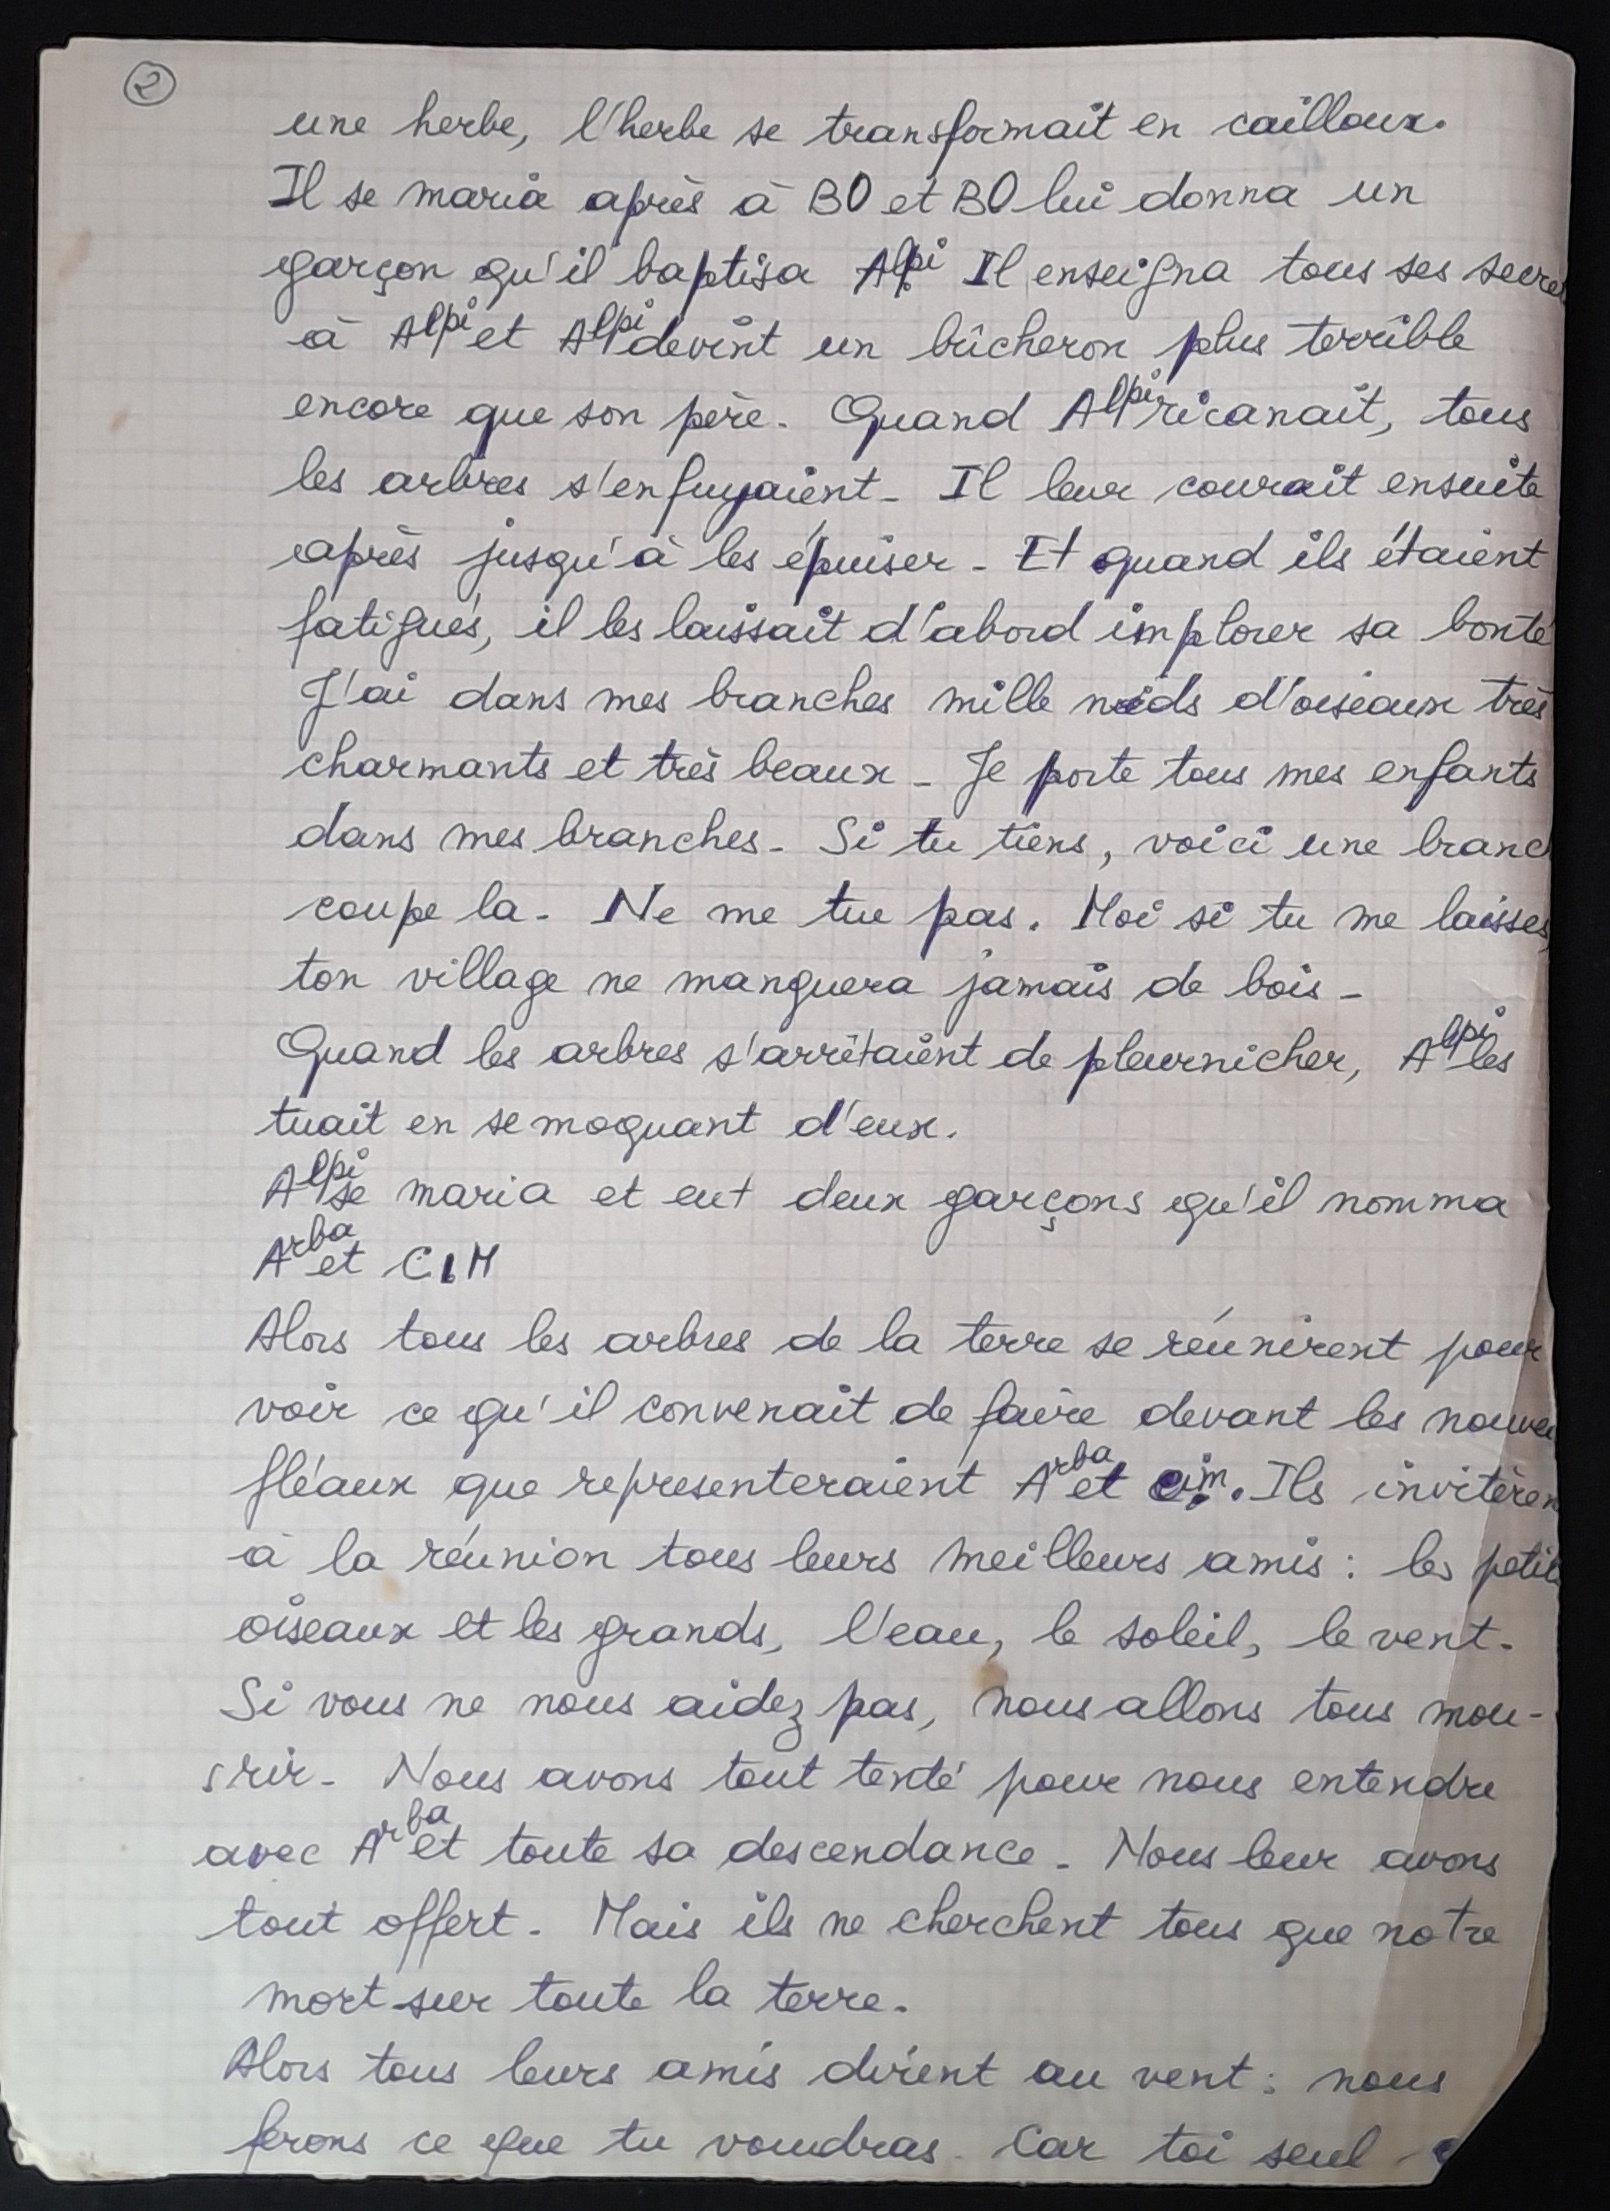 2
une herbe, l'herbe se transformait en cailloux.
Il se maria après à BO et BO lui donna un
garçon qu'il baptisa Alpi Il enseigna tous ses secre
à Alpi et Alpi devint un bûcheron plus terrible
encore que son père. Quand Alpi ricanait, tous
les arbres s'enfuyaient - Il leur courait ensuite
après jusqu'à les épuiser - Et quand ils étaient
fatigués, il les laissait d'abord implorer sa bonté
J'ai dans mes branches mille nids d'oiseaux très
charmants et très beaux - Je porte tous mes enfants
dans mes branches - Si tu tiens, voici une branc
coupe la - Ne me tue pas. Moi si tu me laisses,
ton village ne manquera jamais de bois -
Quand les arbres s'arrêtaient de pleurnicher, Alpi les
tuait en se moquant d'eux.
Alpi se maria et eut deux garçons qu'il nomma
Arba et CIM
Alors tous les arbres de la terre se réunirent pour
voir ce qu'il convenait de faire devant les nouve
fléaux que representeraient Arba et cim. Ils invitèren
à la réunion tous leurs meilleurs amis : les petits
oiseaux et les grands, l'eau, le soleil, le vent -
Si vous ne nous aidez pas, nous allons tous mou-
rir - Nous avons tout tenté pour nous entendre
avec Arba et toute sa descendance - Nous leur avons
tout offert - Mais ils ne cherchent tous que notre
mort sur toute la terre.
Alors tous leurs amis dirent au vent : nous
ferons ce que tu voudras. Car toi seul